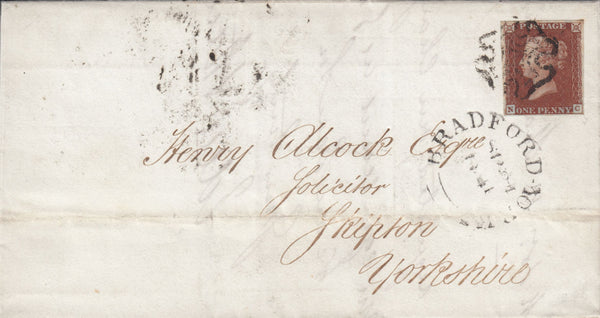 POSTAGE
N C
ONE PENNY
BRADFORD-YORKS
Henry Alcock Esqre
Solicitor
Skipton
Yorkshire